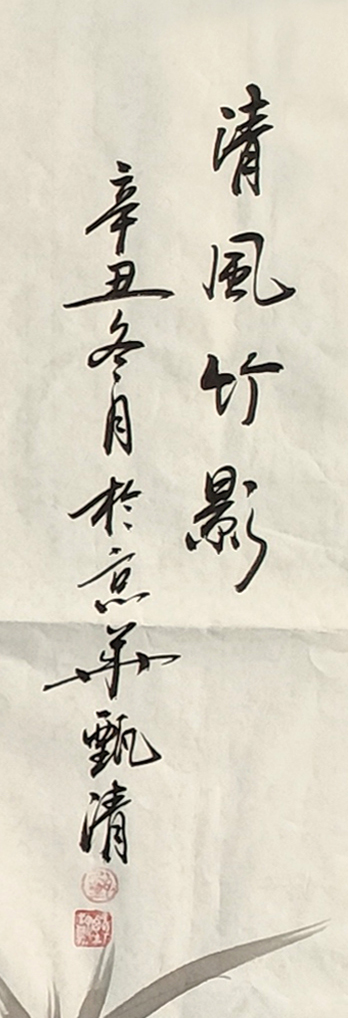 清風竹影
辛丑冬月於京華甄清